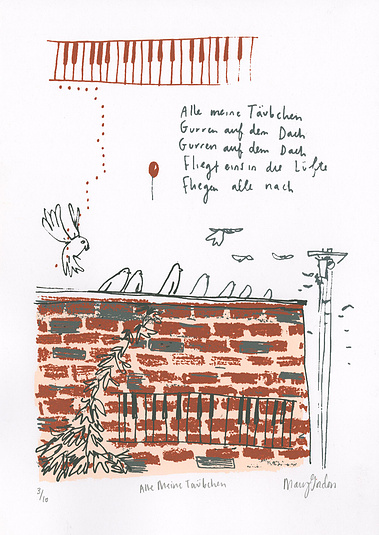 Alle meine Täubchen
Gurren auf dem Dach
Gurren auf dem Dach
Fliegt eins in die Lüfte
Fliegen alle nach
3/10
Alle Meine Täubchen